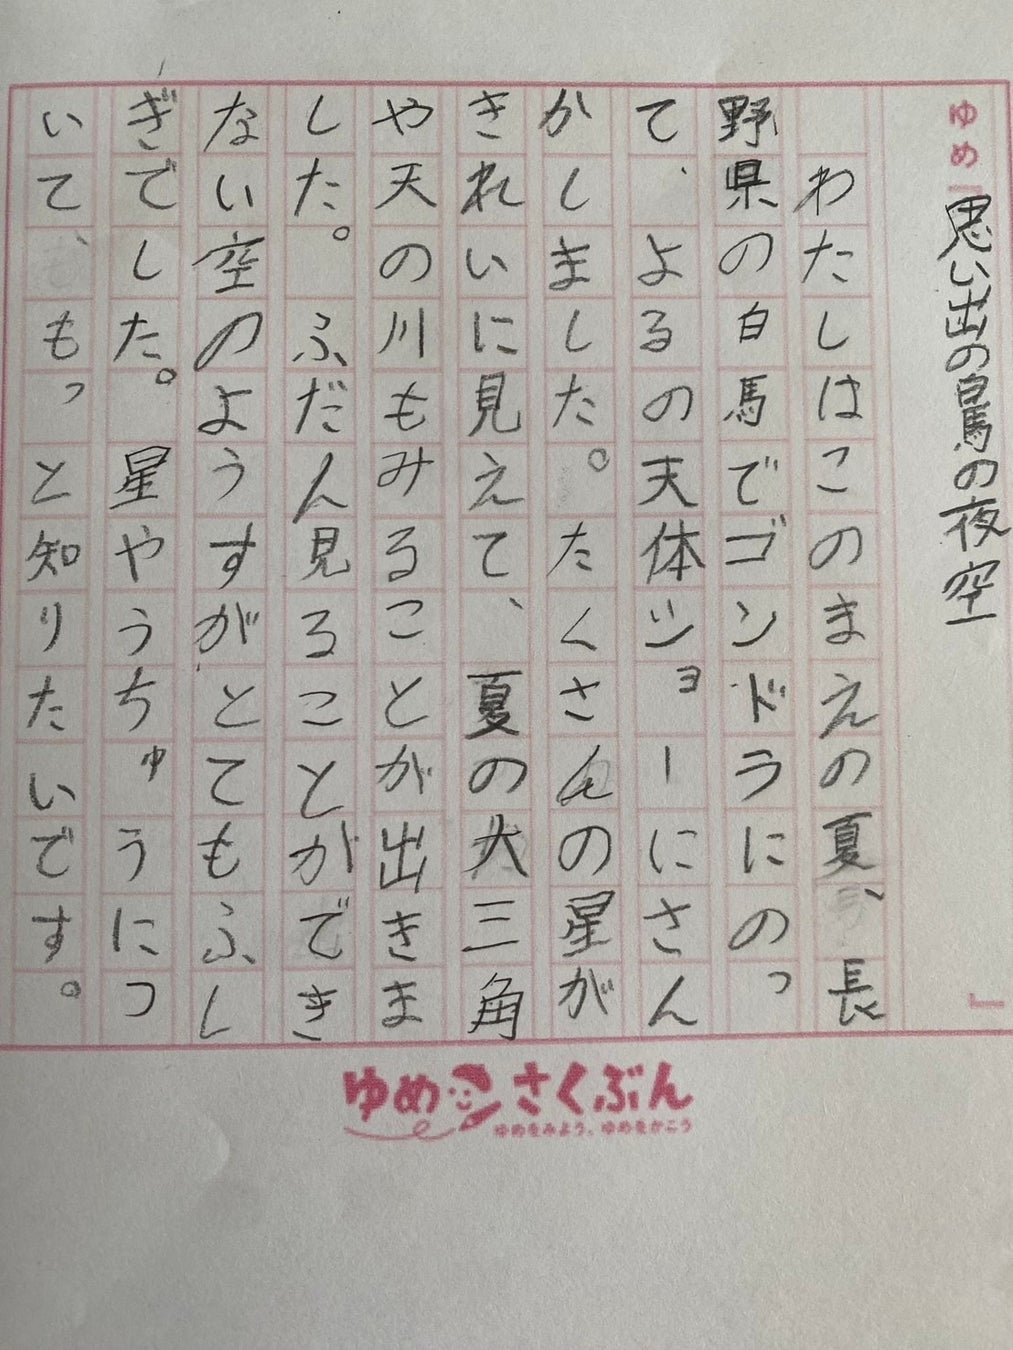 ゆめ「思い出の白馬の夜空」
わたしはこのまえの夏、長
野県の白馬でゴンドラにのっ
て、よるの天体ショーにさん
かしました。たくさんの星が
きれいに見えて、夏の大三角
や天の川もみることが出きま
した。ふだん見ることができ
ない空のようすがとてもふし
ぎでした。星やうちゅうにつ
いて、もっと知りたいです。
ゆめさくぶん
ゆめをみよう、ゆめをかこう